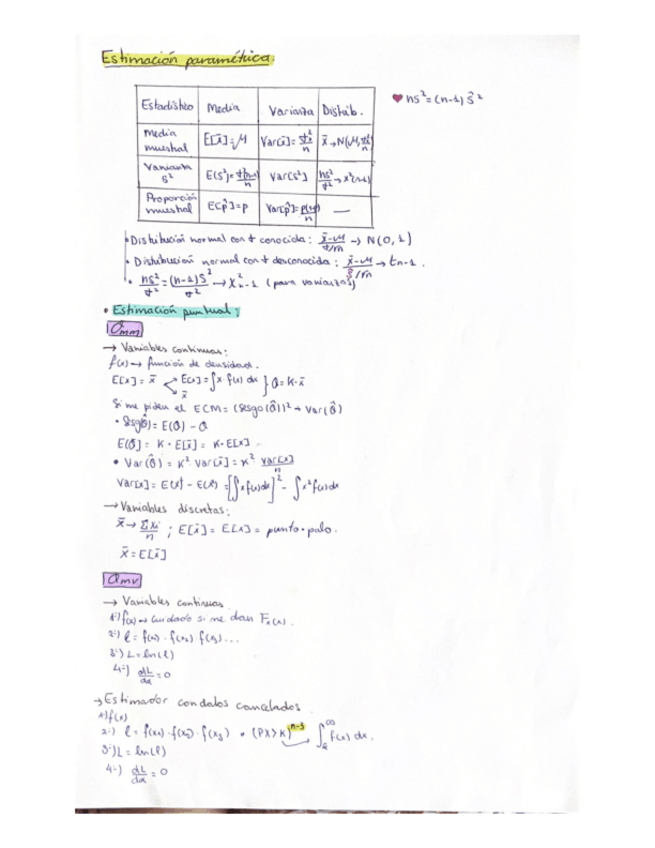 Estimación paramétrica.
♥ ns² = (n-1) ŝ²
Estadístico Media Varianza Distrib.
Media muestral E[x̄]=M Var[x̄]=σ²/n x̄→N(M,σ²/n)
Varianza s² E(s²)=σ²(n-1)/n Var[s²] ns²/σ² → x²(n-1)
Proporción muestral E[p̂]=p Var[p̂]=p(1-p)/n —
• Distribución normal con σ conocida: x̄-M / σ/√n → N(0,1)
• Distribución normal con σ desconocida: x̄-M / ŝ/√n → tn-1.
• ns²/σ² = (n-1)ŝ²/σ² → X²n-1 (para varianzas)
• Estimación puntual:
θ̂mm
→ Variables continuas:
f(x) → función de densidad.
E[x] = x̄ E[x] = ∫x·f(x) dx } θ = K·x̄
x̄
Si me piden el ECM = (Sesgo(θ̂))² + Var(θ̂)
• Sesgo(θ̂) = E(θ̂) - θ
E[θ̂] = K·E[x̄] = K·E[x]
• Var(θ̂) = K² Var[x̄] = K² Var[x]/n
Var[x] = E(x)² - E(x²) = [∫x f(x)dx]² - ∫x² f(x)dx
→ Variables discretas:
x̄ → Σxi/n ; E[x̄] = E[x] = punto·palo.
x̄ = E[x̄]
θ̂mv
→ Variables continuas
1º) f(x) → cuidado si me dan Fx(x).
2º) l = f(x1)·f(x2) f(x3)...
3º) L = ln(l)
4º) dL/dα = 0
→ Estimador con datos cancelados
1º) f(x)
2º) l = f(x1)·f(x2)·f(x3) • (PX>K)ⁿ⁻³ ∫ f(x) dx.
3º) L = ln(l)
4º) dL/dα = 0